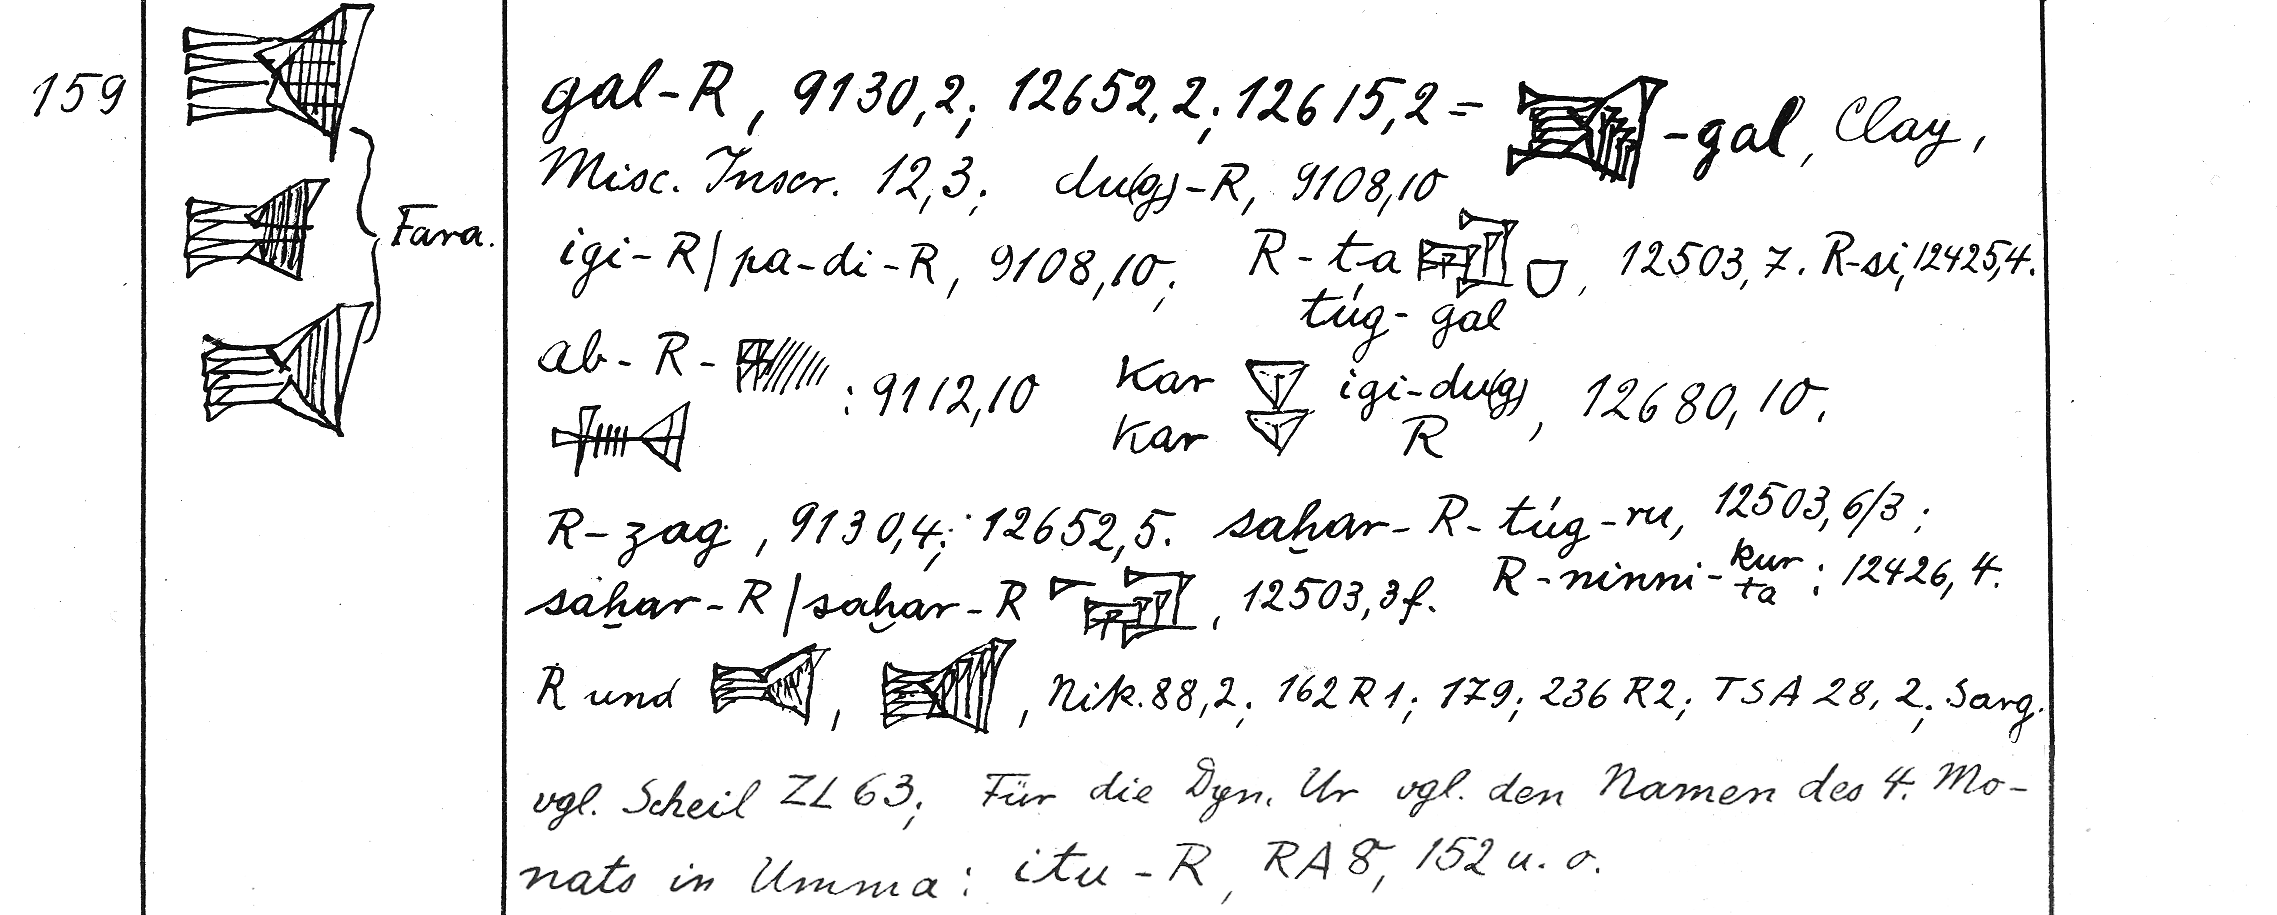 159
Fara.
gal-R, 9130,2; 12652,2; 12615,2 = -gal, Clay,
Misc. Inscr. 12,3; du(g)-R, 9108,10
igi-R/pa-di-R, 9108,10; R-ta , 12503,7. R-si, 12425,4.
túg-gal
ab-R- : 9112,10 kar igi-du(g), 12680,10.
kar R
R-zag, 9130,4; 12652,5. saḫar-R-túg-ru, 12503,6/3;
saḫar-R/saḫar-R , 12503,3f. R-ninni-kur : 12426,4.
ta
R und , , Nik. 88,2; 162 R1; 179; 236 R2; TSA 28, 2; Sarg.
vgl. Scheil ZL 63; Für die Dyn. Ur vgl. den Namen des 4. Mo-
nats in Umma: itu-R, RA 8, 152 u. o.